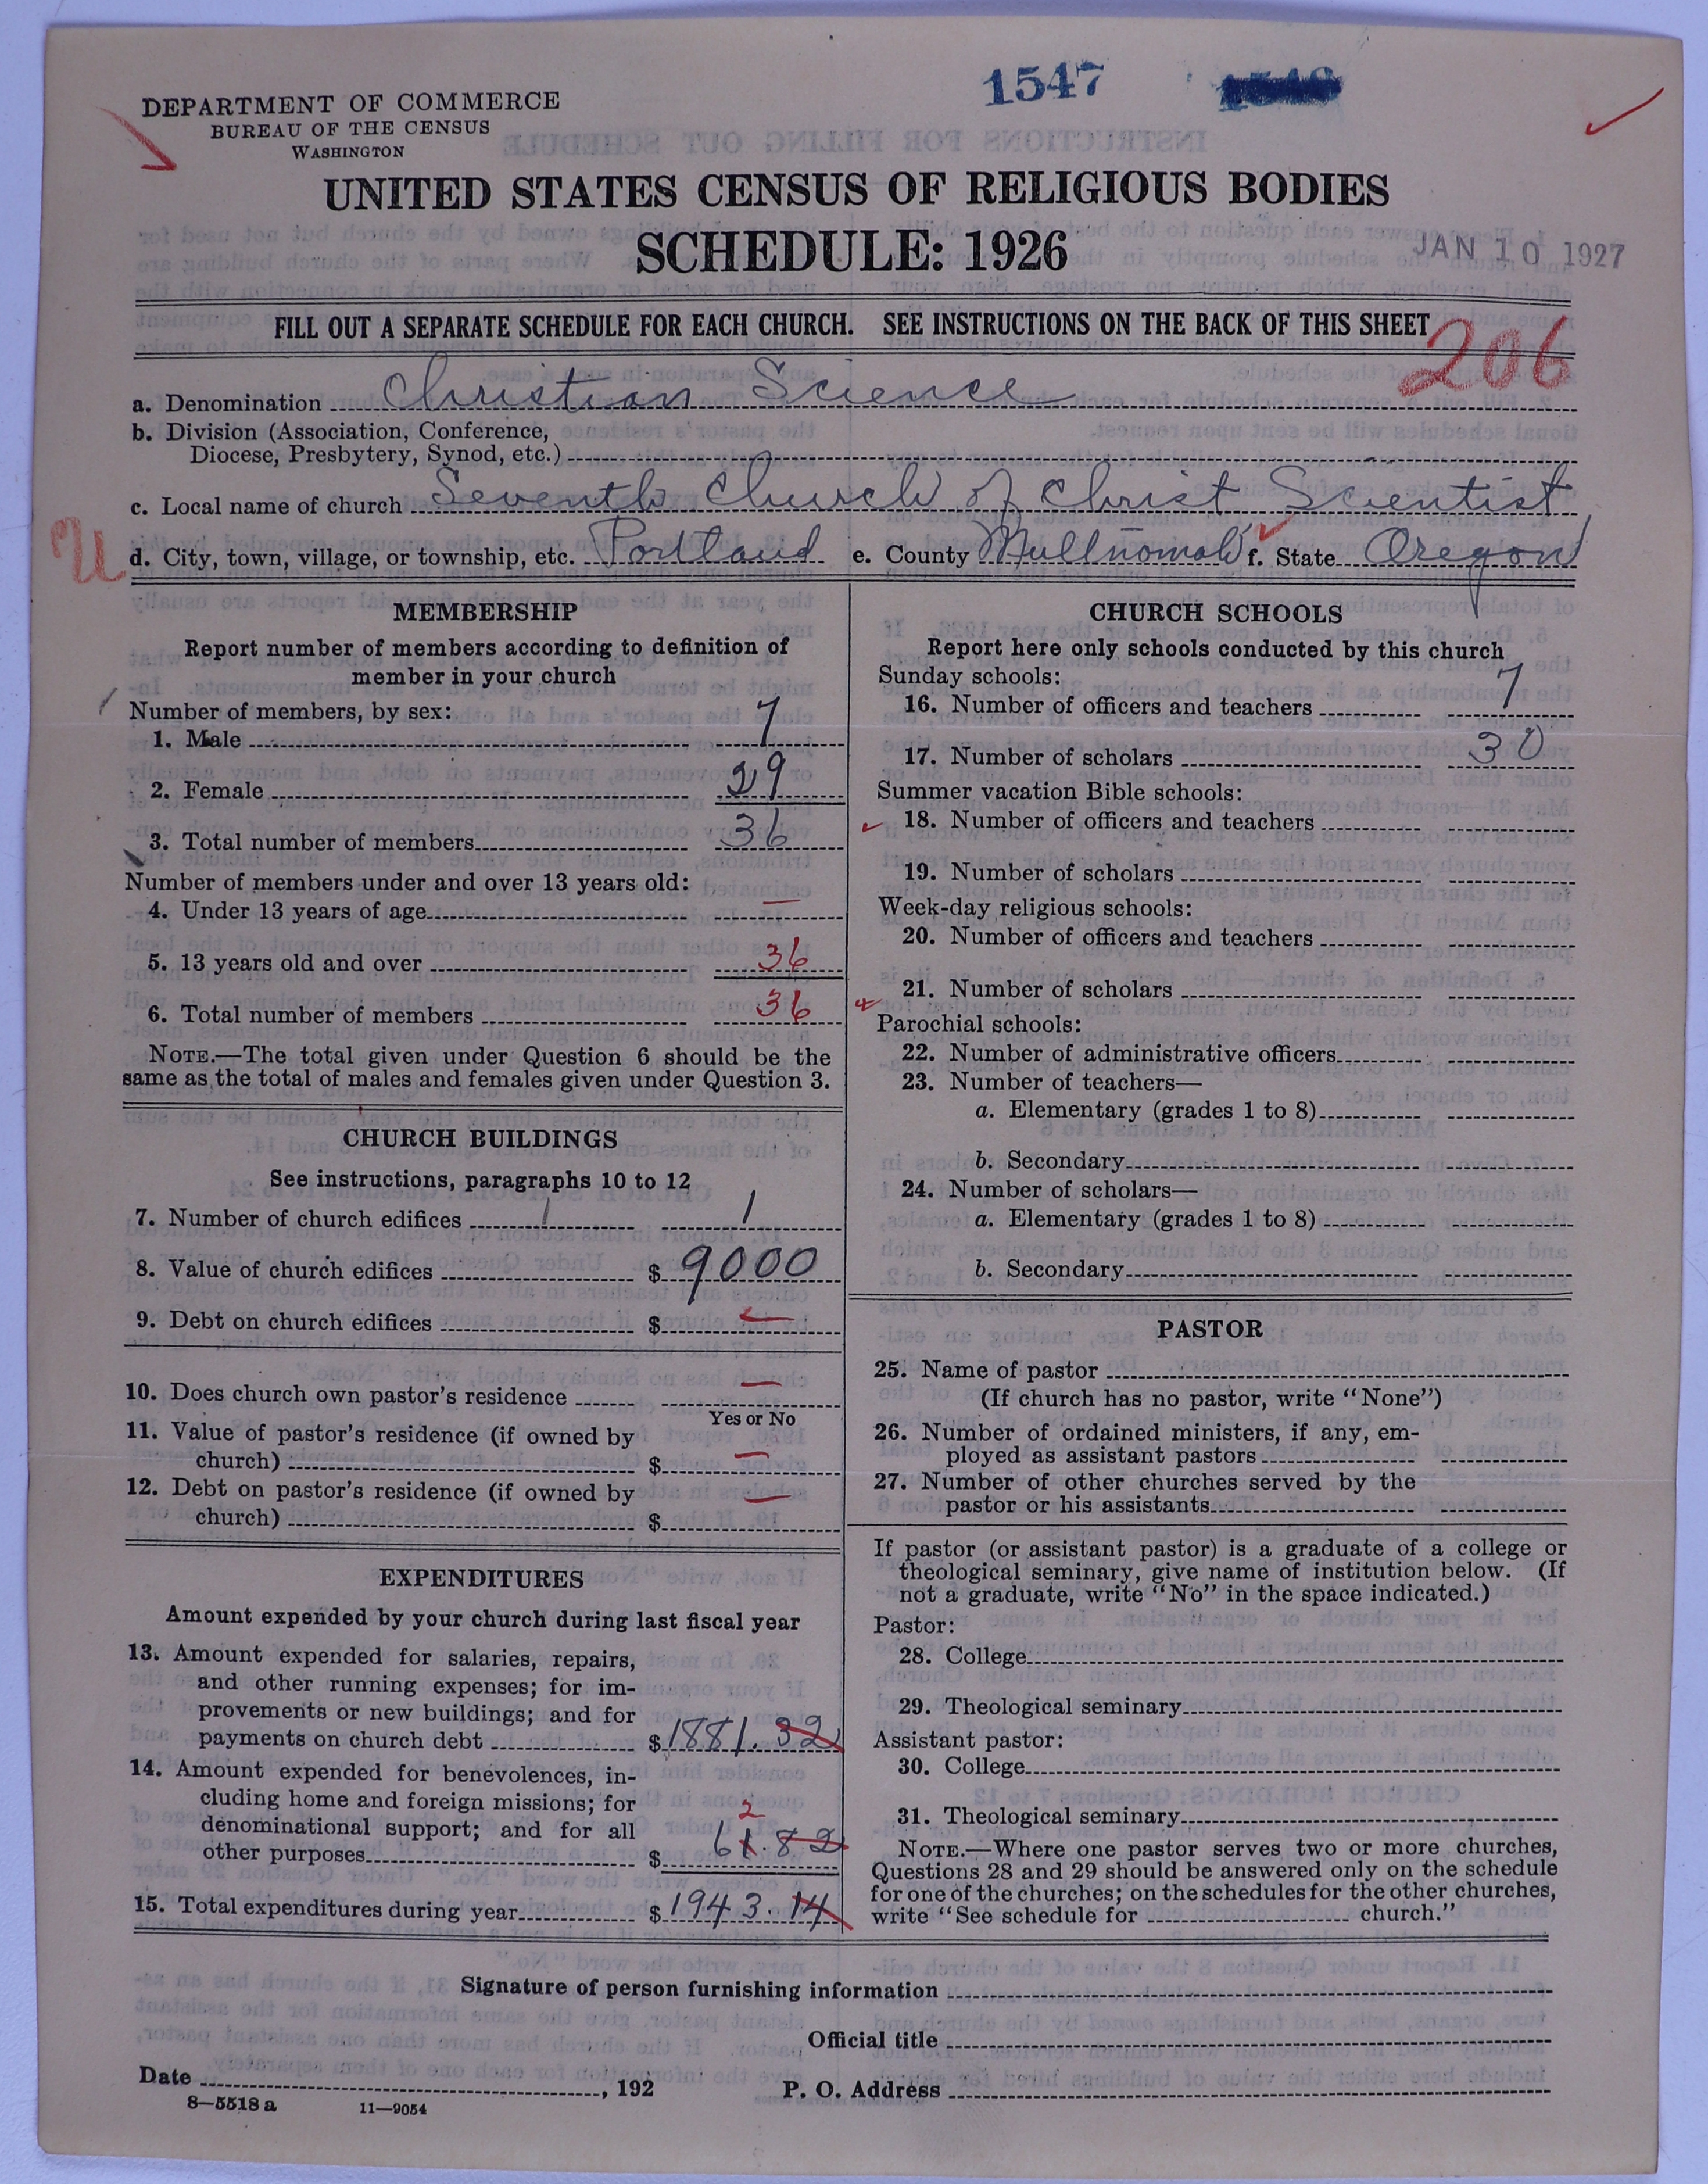 1547
DEPARTMENT OF COMMERCE
BUREAU OF THE CENSUS
WASHINGTON
UNITED STATES CENSUS OF RELIGIOUS BODIES
SCHEDULE: 1926
JAN 10 1927
FILL OUT A SEPARATE SCHEDULE FOR EACH CHURCH. SEE INSTRUCTIONS ON THE BACK OF THIS SHEET
206
a. Denomination Christian Science
b. Division (Association, Conference,
Diocese, Presbytery, Synod, etc.)
c. Local name of church Seventh Church of Christ Scientist
U
d. City, town, village, or township, etc. Portland e. County Multnomah f. State Oregon
MEMBERSHIP
Report number of members according to definition of
member in your church
Number of members, by sex:
1. Male 7
2. Female 29
3. Total number of members 36
Number of members under and over 13 years old:
4. Under 13 years of age —
5. 13 years old and over 36
6. Total number of members 36
NOTE.—The total given under Question 6 should be the
same as the total of males and females given under Question 3.
CHURCH BUILDINGS
See instructions, paragraphs 10 to 12
7. Number of church edifices 1 1
8. Value of church edifices $ 9000
9. Debt on church edifices $ —
10. Does church own pastor's residence —
Yes or No
11. Value of pastor's residence (if owned by
church) $ —
12. Debt on pastor's residence (if owned by
church) $ —
EXPENDITURES
Amount expended by your church during last fiscal year
13. Amount expended for salaries, repairs,
and other running expenses; for im-
provements or new buildings; and for
payments on church debt $ 1881.32
14. Amount expended for benevolences, in-
cluding home and foreign missions; for
denominational support; and for all
2
other purposes $ 61.82
15. Total expenditures during year $ 1943.14
CHURCH SCHOOLS
Report here only schools conducted by this church
Sunday schools:
16. Number of officers and teachers 7
17. Number of scholars 30
Summer vacation Bible schools:
18. Number of officers and teachers
19. Number of scholars
Week-day religious schools:
20. Number of officers and teachers
21. Number of scholars
Parochial schools:
22. Number of administrative officers
23. Number of teachers—
a. Elementary (grades 1 to 8)
b. Secondary
24. Number of scholars—
a. Elementary (grades 1 to 8)
b. Secondary
PASTOR
25. Name of pastor
(If church has no pastor, write "None")
26. Number of ordained ministers, if any, em-
ployed as assistant pastors
27. Number of other churches served by the
pastor or his assistants
If pastor (or assistant pastor) is a graduate of a college or
theological seminary, give name of institution below. (If
not a graduate, write "No" in the space indicated.)
Pastor:
28. College
29. Theological seminary
Assistant pastor:
30. College
31. Theological seminary
NOTE.—Where one pastor serves two or more churches,
Questions 28 and 29 should be answered only on the schedule
for one of the churches; on the schedules for the other churches,
write "See schedule for church."
Signature of person furnishing information
Official title
Date , 192
P. O. Address
8—5518 a 11—9054